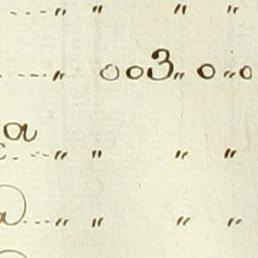 ---〃 〃 〃 〃
---〃 003〃 0〃0
a
c---〃 〃 〃 〃
a---〃 〃 〃 〃